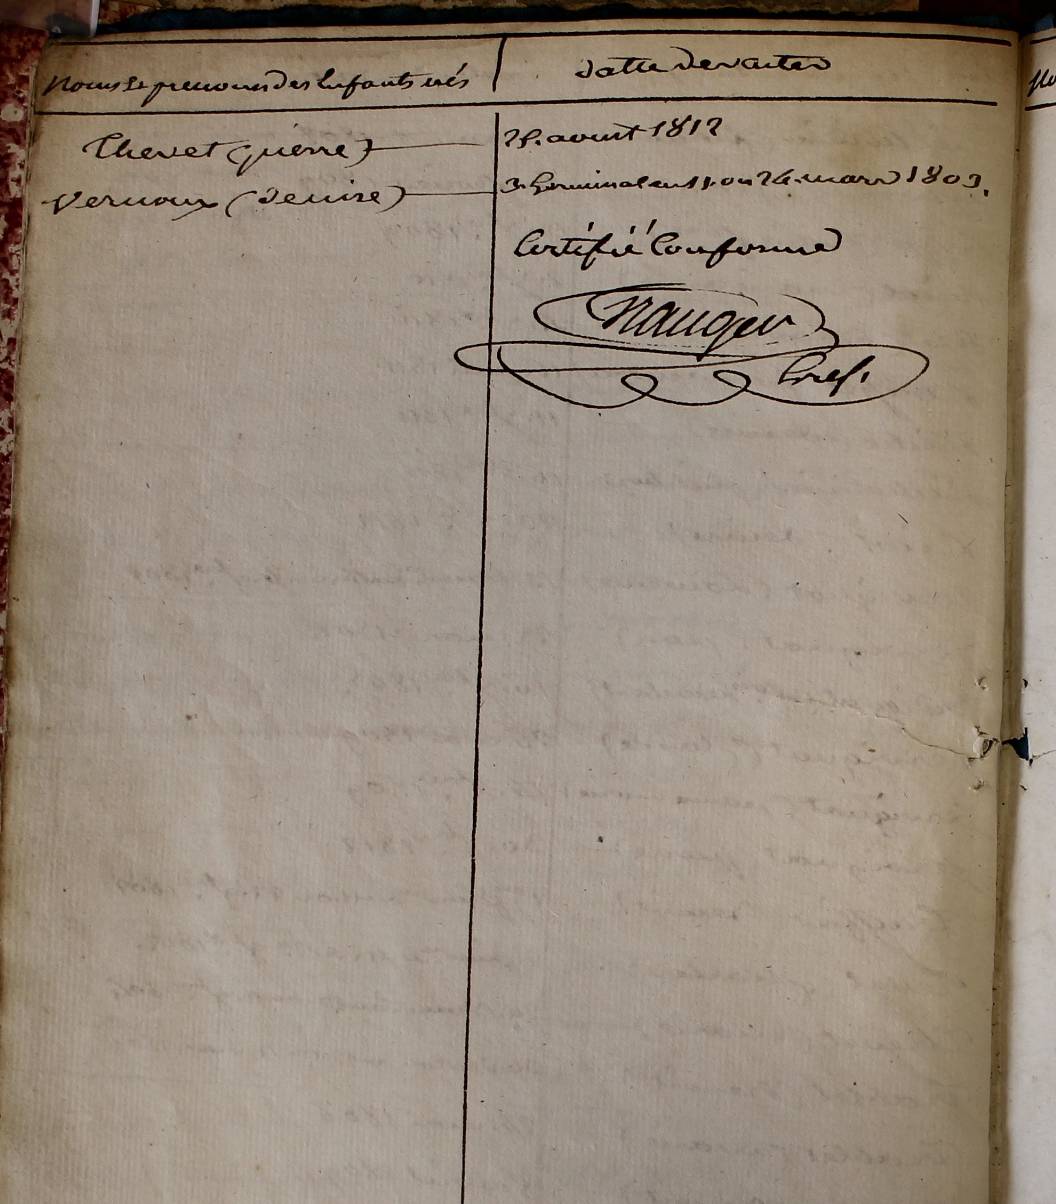 Noms et prenoms des Enfants nés
Datte des actes
Thevet (pierre)
25. aout 1812
Vernoux (Denise)
3. Germinal an 11. ou 24. mars 1803.
Certifié Conforme
Mauger
Gref.